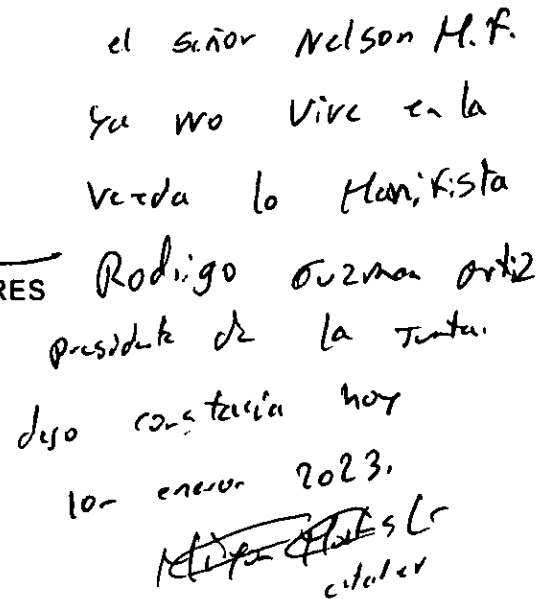 el señor Nelson H.F.
ya no vive en la
vereda lo Manifista
RES Rodrigo Guzman ortiz
presidente de la Junta.
dejo constancia hoy
10- enero- 2023.
citador